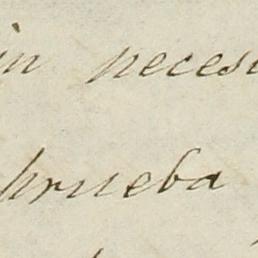 in neces
prueba